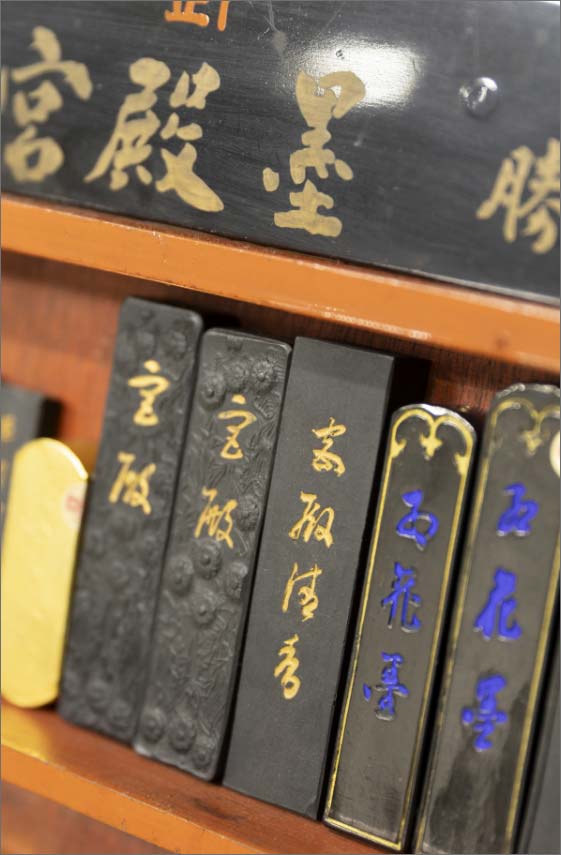 宮殿墨 勝
宮殿
宮殿
宮殿清香
花墨
花墨